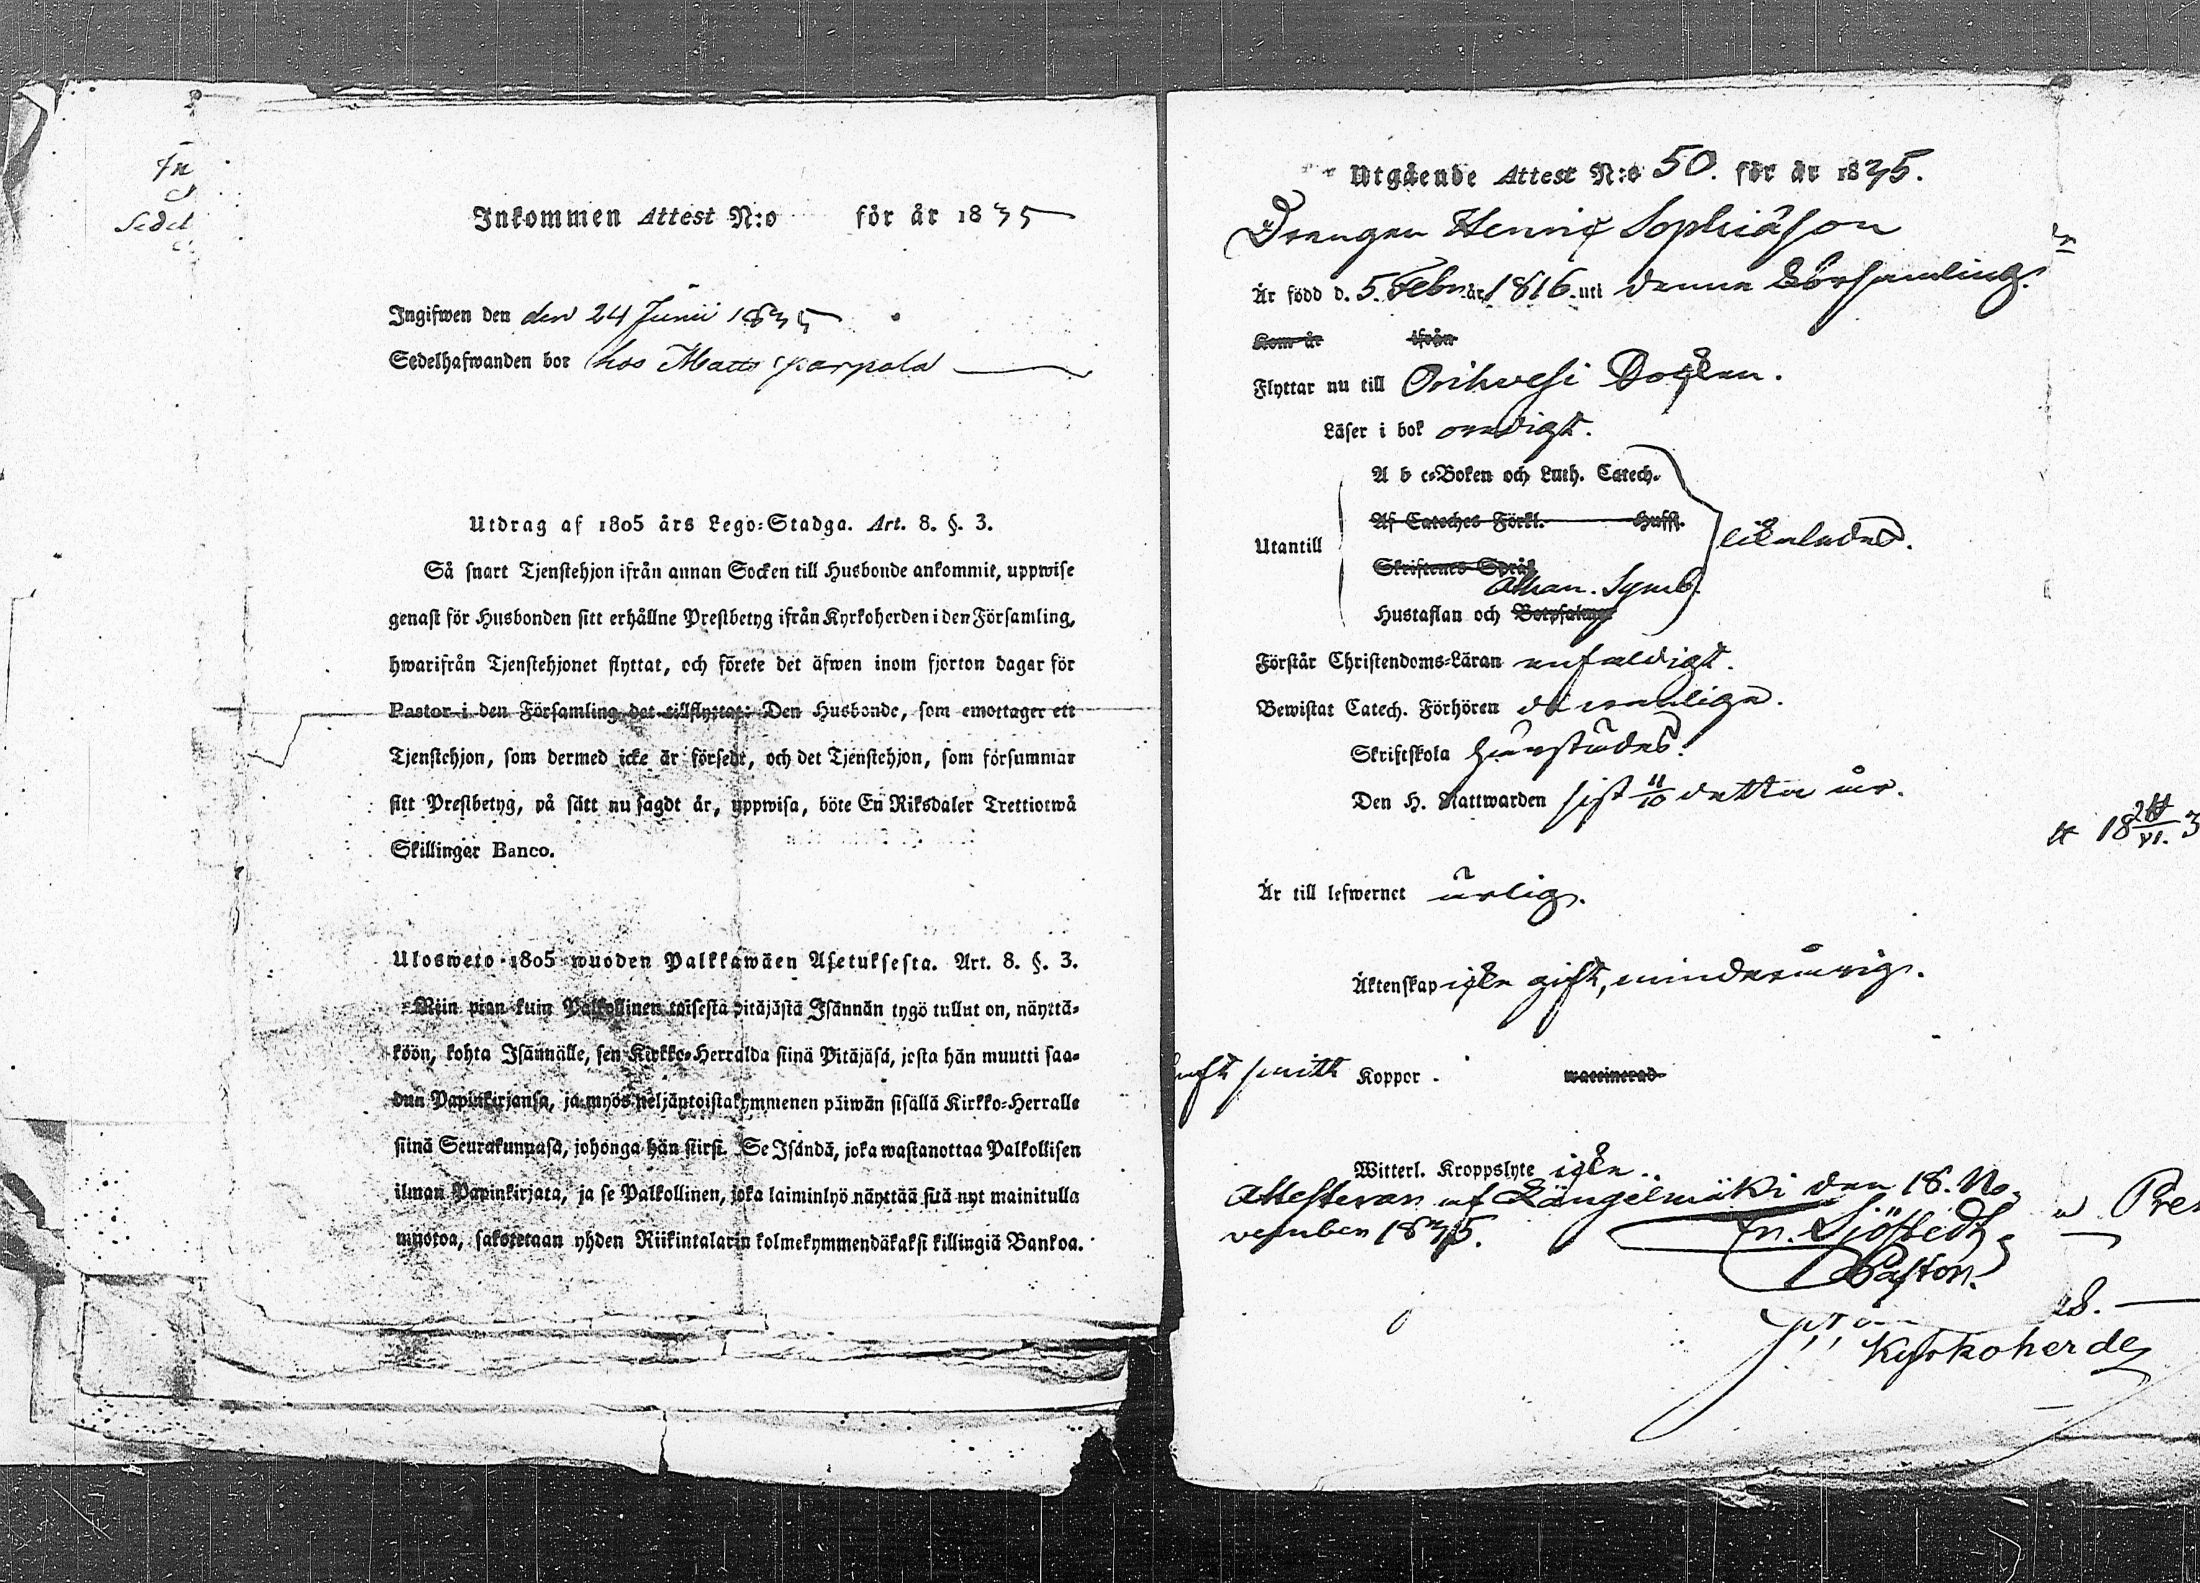 In
Sedel
Inkommen Attest N:o för år 1835
Ingifwen den den 24 Junii 1835
Sedelhafwanden bor hos Matts Karpala
Utdrag af 1805 års Lego-Stadga. Art. 8. §. 3.
Så snart Tjenstehjon ifrån annan Socken till Husbonde ankommit, uppwise
genast för Husbonden sitt erhållne Prestbetyg ifrån Kyrkoherden i den Församling,
hwarifrån Tjenstehjonet flyttat, och förete det äfwen inom fjorton dagar för
Pastor i den Församling det tillflyttat: Den Husbonde, som emottager ett
Tjenstehjon, som dermed icke är försedt, och det Tjenstehjon, som försummar
sitt Prestbetyg, på sätt nu sagdt är, uppwisa, böte En Riksdaler Trettiotwå
Skillingar Banco.
Ulosweto 1805 wuoden Palkkawäen Asetuksesta. Art. 8. §. 3.
Niin pian kuin Palkollinen toisesta pitäjästä Isännän tygö tullut on, näyttä-
köön, kohta Isännälle, sen Kirkko-Herralda siinä Pitäjäsä, josta hän muutti saa-
dun Papinkirjansa, ja myös neljäntoistakymmenen päiwän sisällä Kirkko-Herralle
siinä Seurakunnasa, johonga hän siirsi. Se Isändä, joka wastanottaa Palkollisen
ilman Papinkirjata, ja se Palkollinen, joka laiminlyö näyttää sitä nyt mainitulla
muotoa, sakotetaan yhden Riikintalarin kolmekymmendäkaksi killingiä Bankoa.
Utgående Attest N:o 50. för år 1835.
Drengen Henric Sophiäson
Är född d. 5. Febr. år 1816. uti denna Församling.
Kom år ifrån
Flyttar nu till Orihvesi Socken.
Läser i bok ordigt.
A b c-Boken och Luth. Catech.
Af Cateches Förkl. Hufst.
Utantill likaledes.
Skriftenes Språk
Athan. Symb.
Hustaflan och Botpsalmer
Förstår Christendoms-Läran enfaldigt.
Bewistat Catech. Förhören de vanliga.
Skriftskola härstädes.
Den H. Nattwarden sist 11/10 detta år.
Är till lefwernet ärlig.
Äktenskap icke gift, minderårig.
haft smitt Koppor. waccinerad
Witterl. Kroppslyte icke.
Attesteras af Längelmäki den 18. No-
vember 1835. En. Sjöstedt
Pastor.
Kyrkoherde